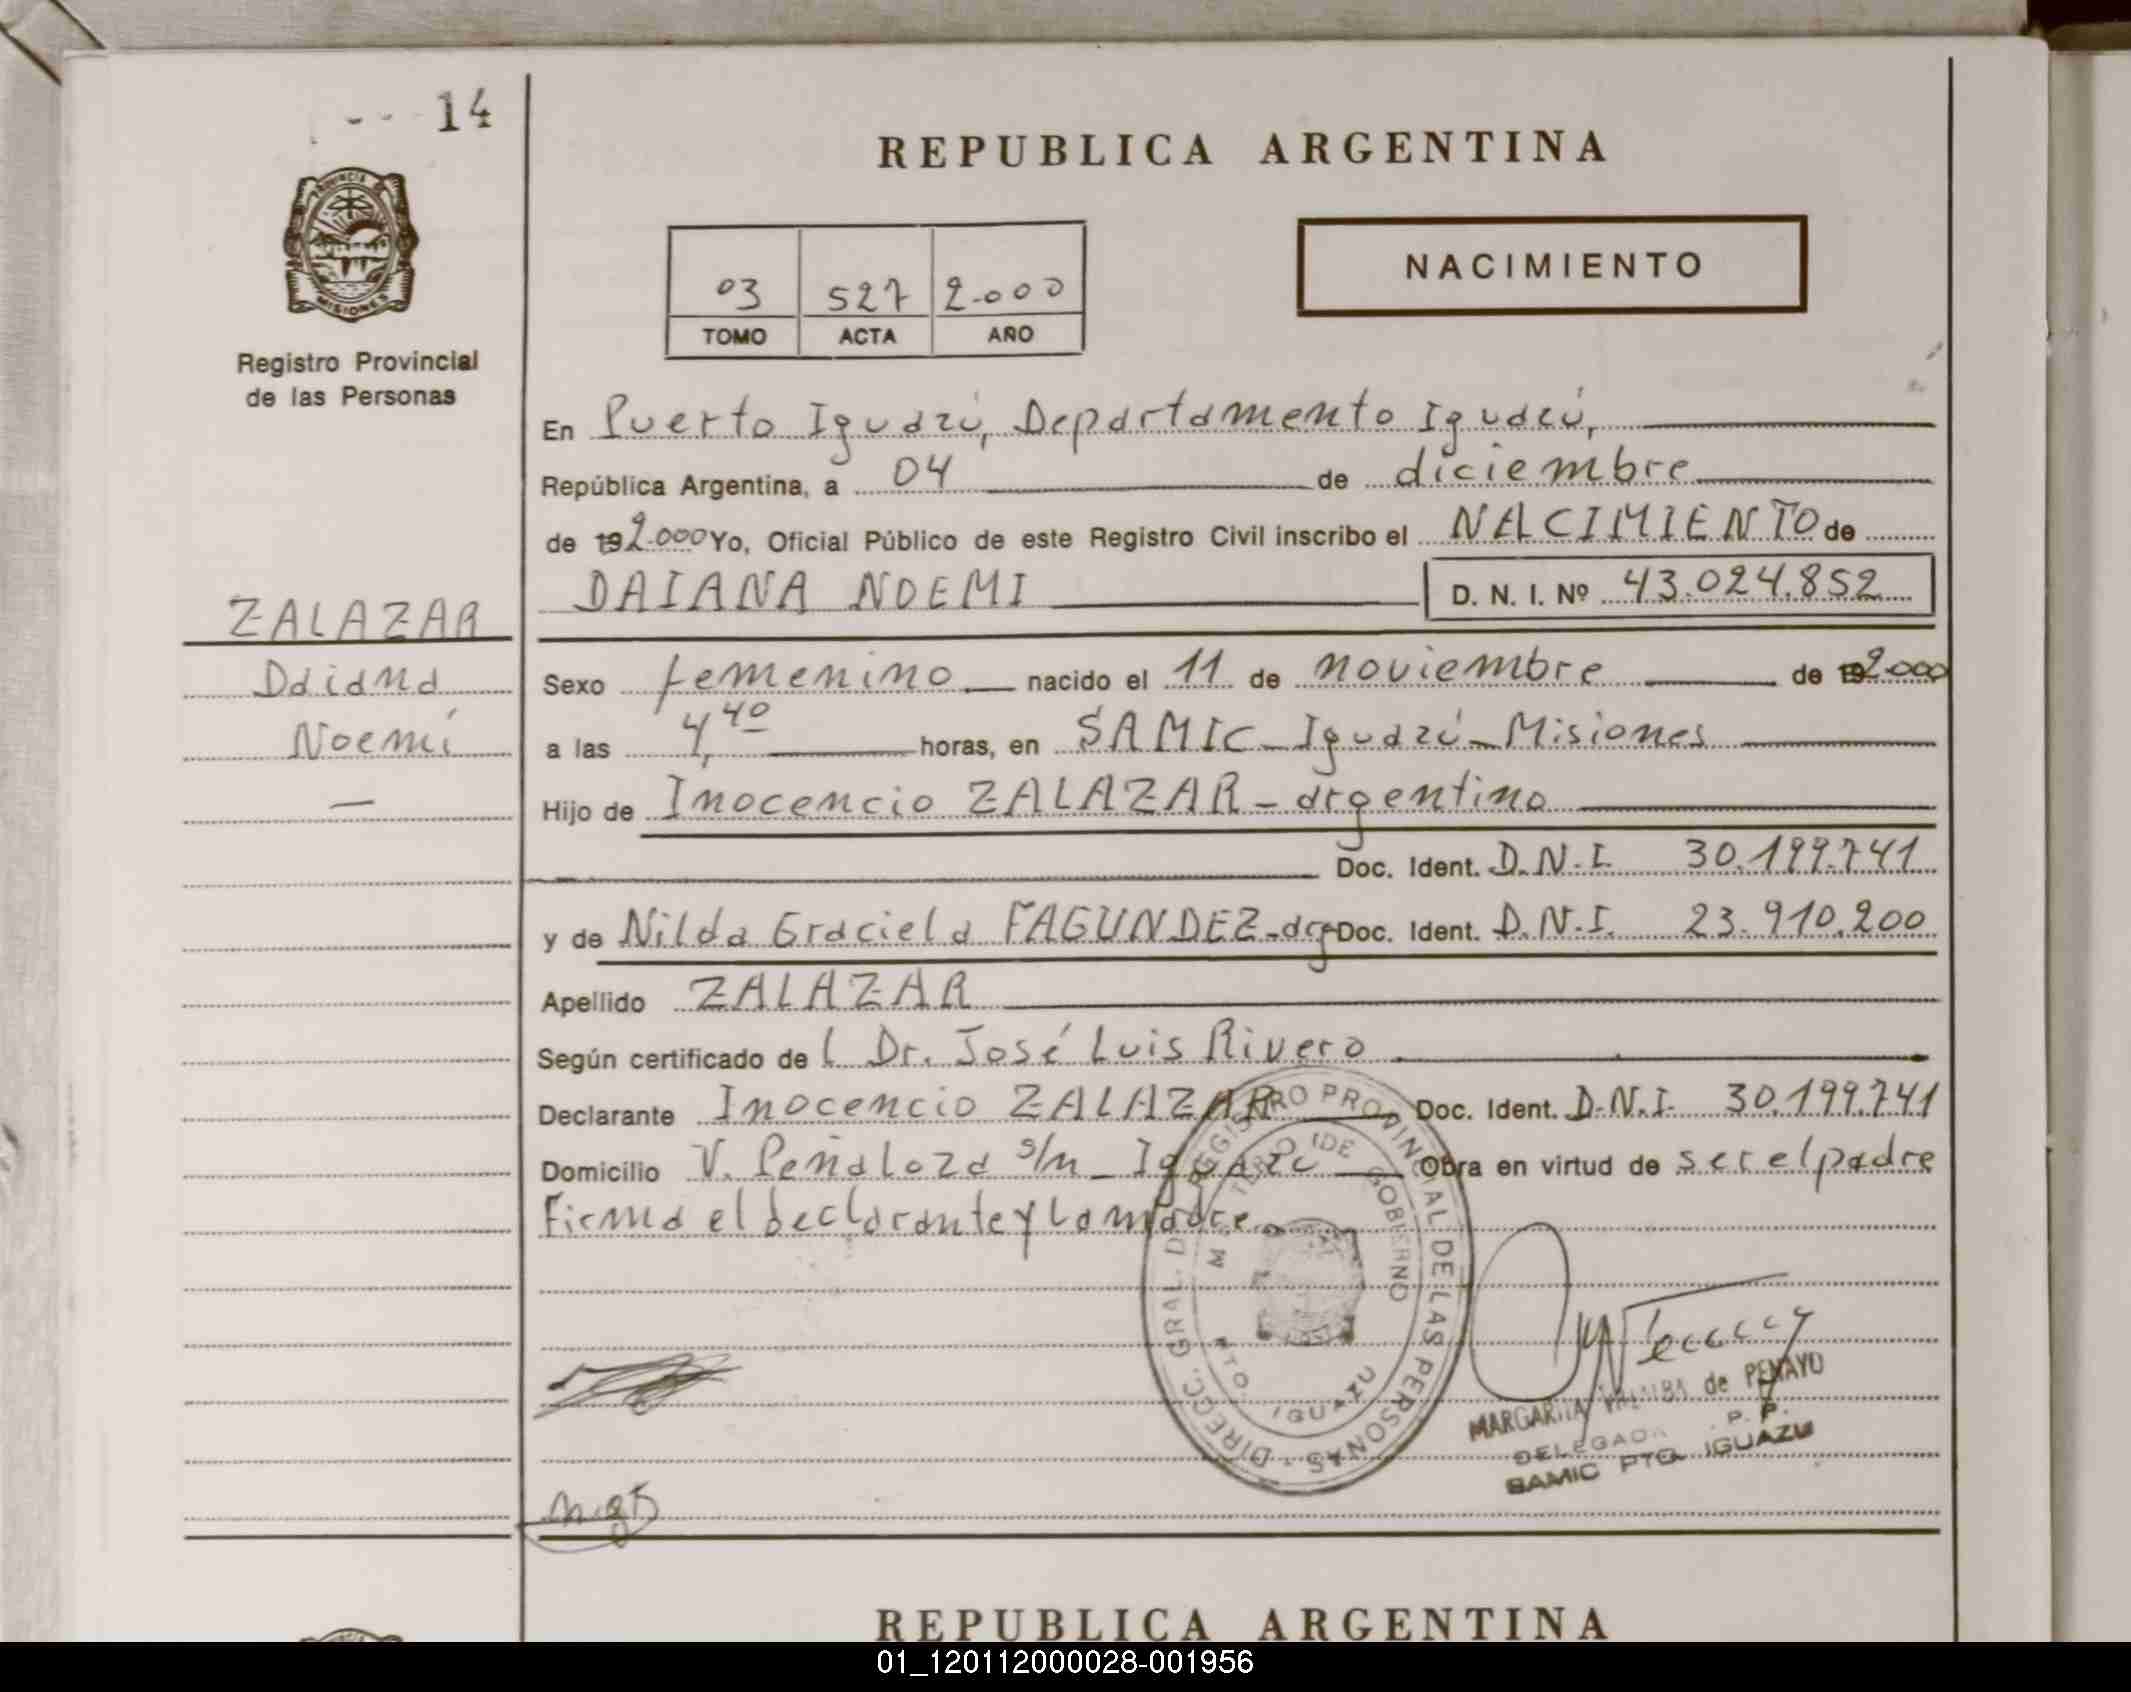 14
REPUBLICA ARGENTINA
PROVINCIA DE
MISIONES
Registro Provincial
de las Personas
03 527 2.000
TOMO ACTA AÑO
NACIMIENTO
En Puerto Iguazú, Departamento Iguazú,
República Argentina, a 04 de diciembre
de 192.000 Yo, Oficial Público de este Registro Civil inscribo el NACIMIENTO de
DAIANA NOEMI D. N. I. Nº 43.024.852
ZALAZAR
Daiana
Noemí
—
Sexo femenino nacido el 11 de noviembre de 192000
a las 4,40 horas, en SAMIC - Iguazú - Misiones
Hijo de Inocencio ZALAZAR - argentino
Doc. Ident. D.N.I. 30.199.741
y de Nilda Graciela FAGUNDEZ - arg Doc. Ident. D.N.I. 23.910.200
Apellido ZALAZAR
Según certificado de l Dr. José Luis Rivero
Declarante Inocencio ZALAZAR Doc. Ident. D.N.I. 30.199.741
Domicilio V. Peñaloza s/n - Iguazú Obra en virtud de ser el padre
Firma el declarante y la madre
DIRECC. GRAL. DEL REGISTRO PROVINCIAL DE LAS PERSONAS
MINISTERIO DE GOBIERNO
PTO. IGUAZU
MARGARITA de PENAYO
DELEGADA P. P.
SAMIC PTO. IGUAZU
REPUBLICA ARGENTINA
01_120112000028-001956